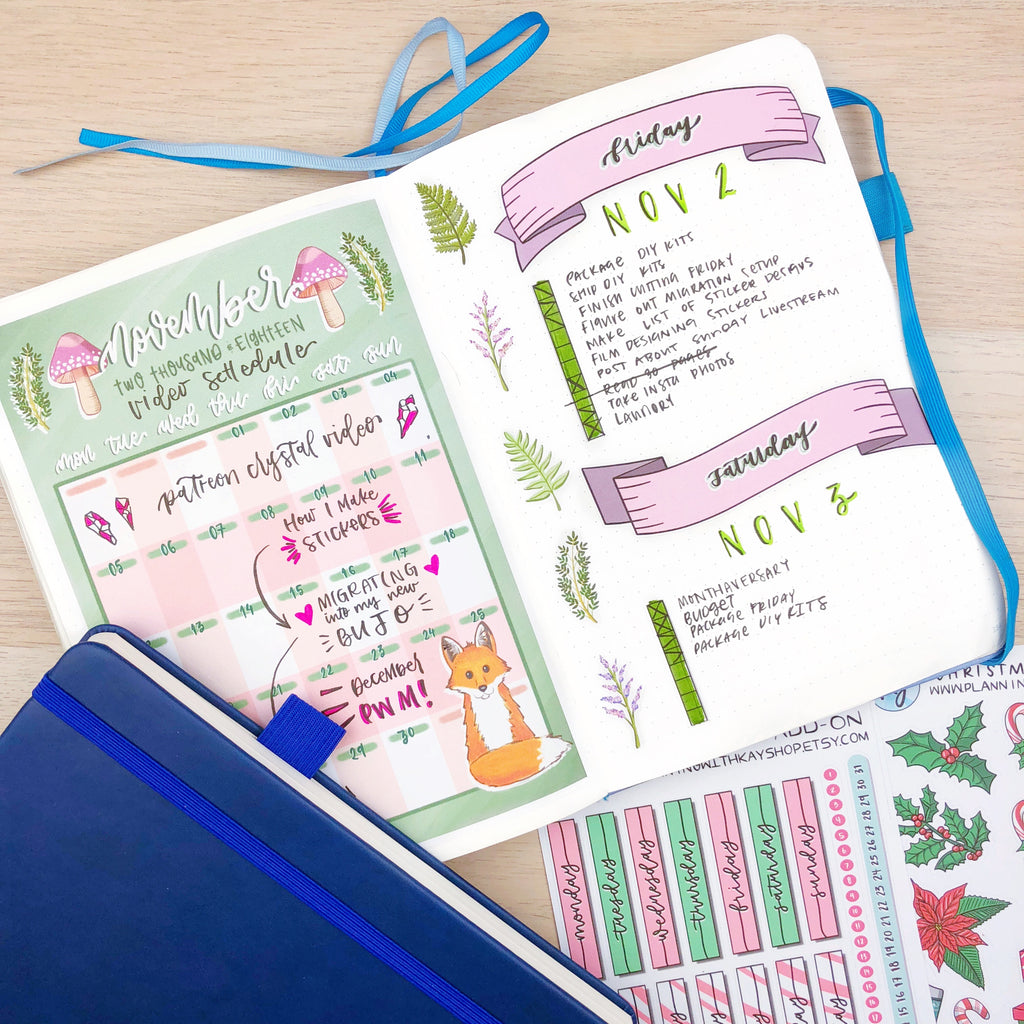 November
TWO THOUSAND & EIGHTEEN
Video Schedule
mon tue wed thu fri sat sun
01 02 03 04
patreon crystal video
05 06 07 08 09 10 11
How I Make
STICKERS
13 14 15 16 17 18
MIGRATING
into my new
BUJO
21 22 23 24 25
December
PWM!
29 30
friday
NOV 2
PACKAGE DIY KITS
SHIP DIY KITS
FINISH CUTTING FRIDAY
FIGURE OUT MIGRATION SETUP
MAKE LIST OF STICKER DESIGNS
FILM DESIGNING STICKERS
POST ABOUT SUNDAY LIVESTREAM
READ 90 PAGES
TAKE INSTA PHOTOS
LAUNDRY
saturday
NOV 3
MONTHAVERSARY
BUDGET
PACKAGE FRIDAY
PACKAGE DIY KITS
ADD-ON
NGWITHKAYSHOP.ETSY.COM
monday
tuesday
wednesday
thursday
friday
saturday
sunday
15 16 17 18 19 20 21 22 23 24 25 26 27 28 29 30 31
CHRISTM
WWW.PLANNIN